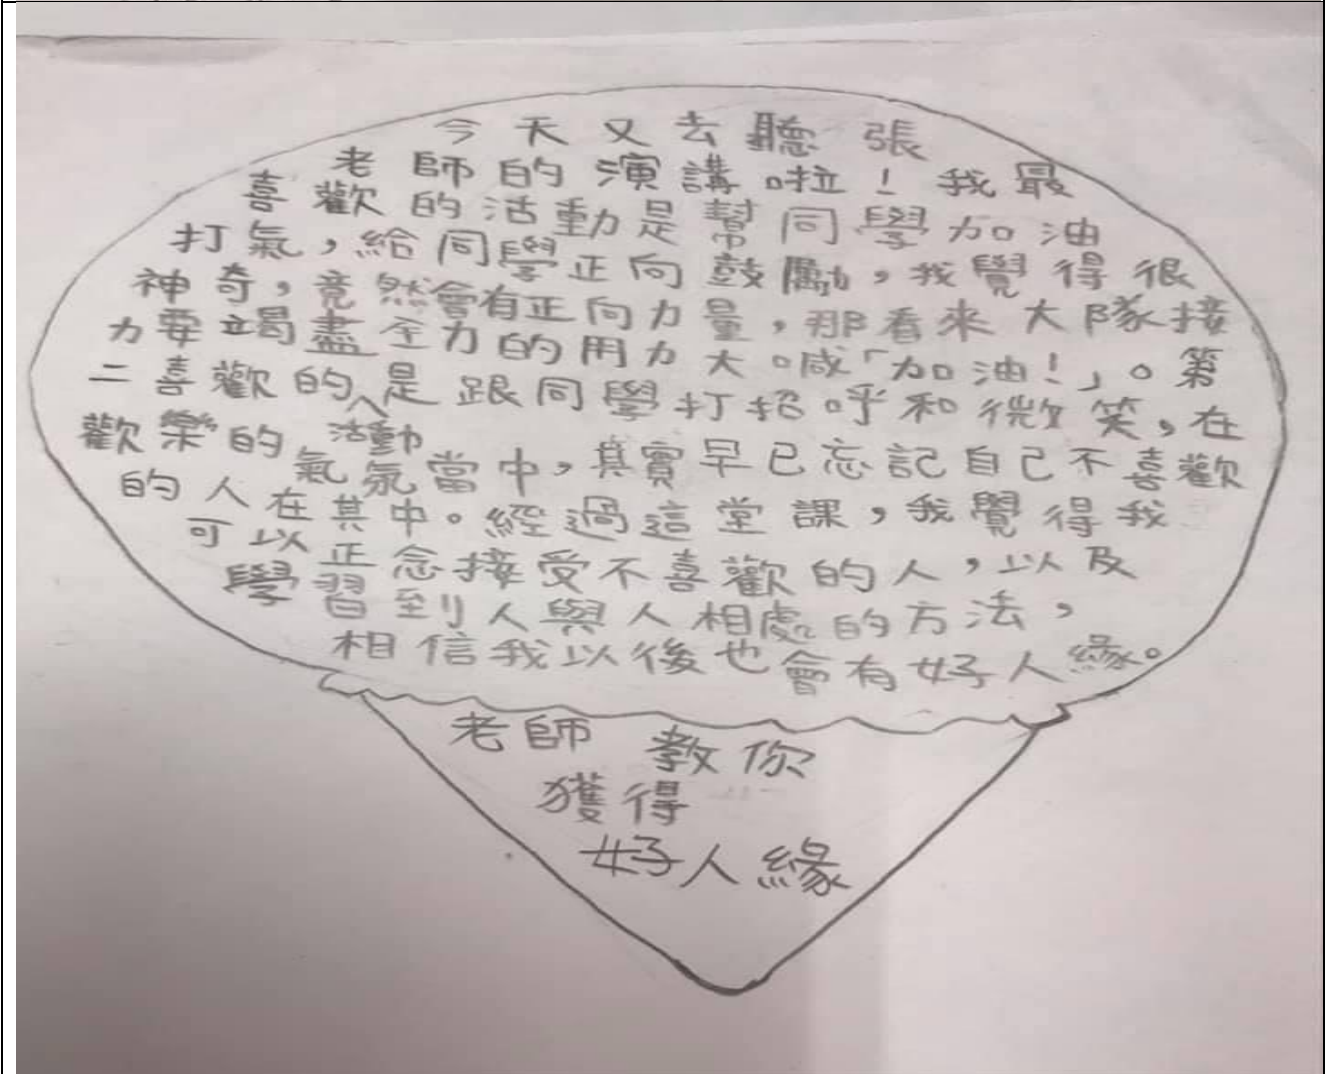 今天又去聽張
老師的演講啦！我最
喜歡的活動是幫同學加油
打氣，給同學正向鼓勵，我覺得很
神奇，竟然會有正向力量，那看來大隊接
力要竭盡全力的用力大喊「加油！」。第
二喜歡的活動是跟同學打招呼和微笑，在
歡樂的氣氛當中，其實早已忘記自己不喜歡
的人在其中。經過這堂課，我覺得我
可以正念接受不喜歡的人，以及
學習到人與人相處的方法，
相信我以後也會有好人緣。
老師教你
獲得
好人緣